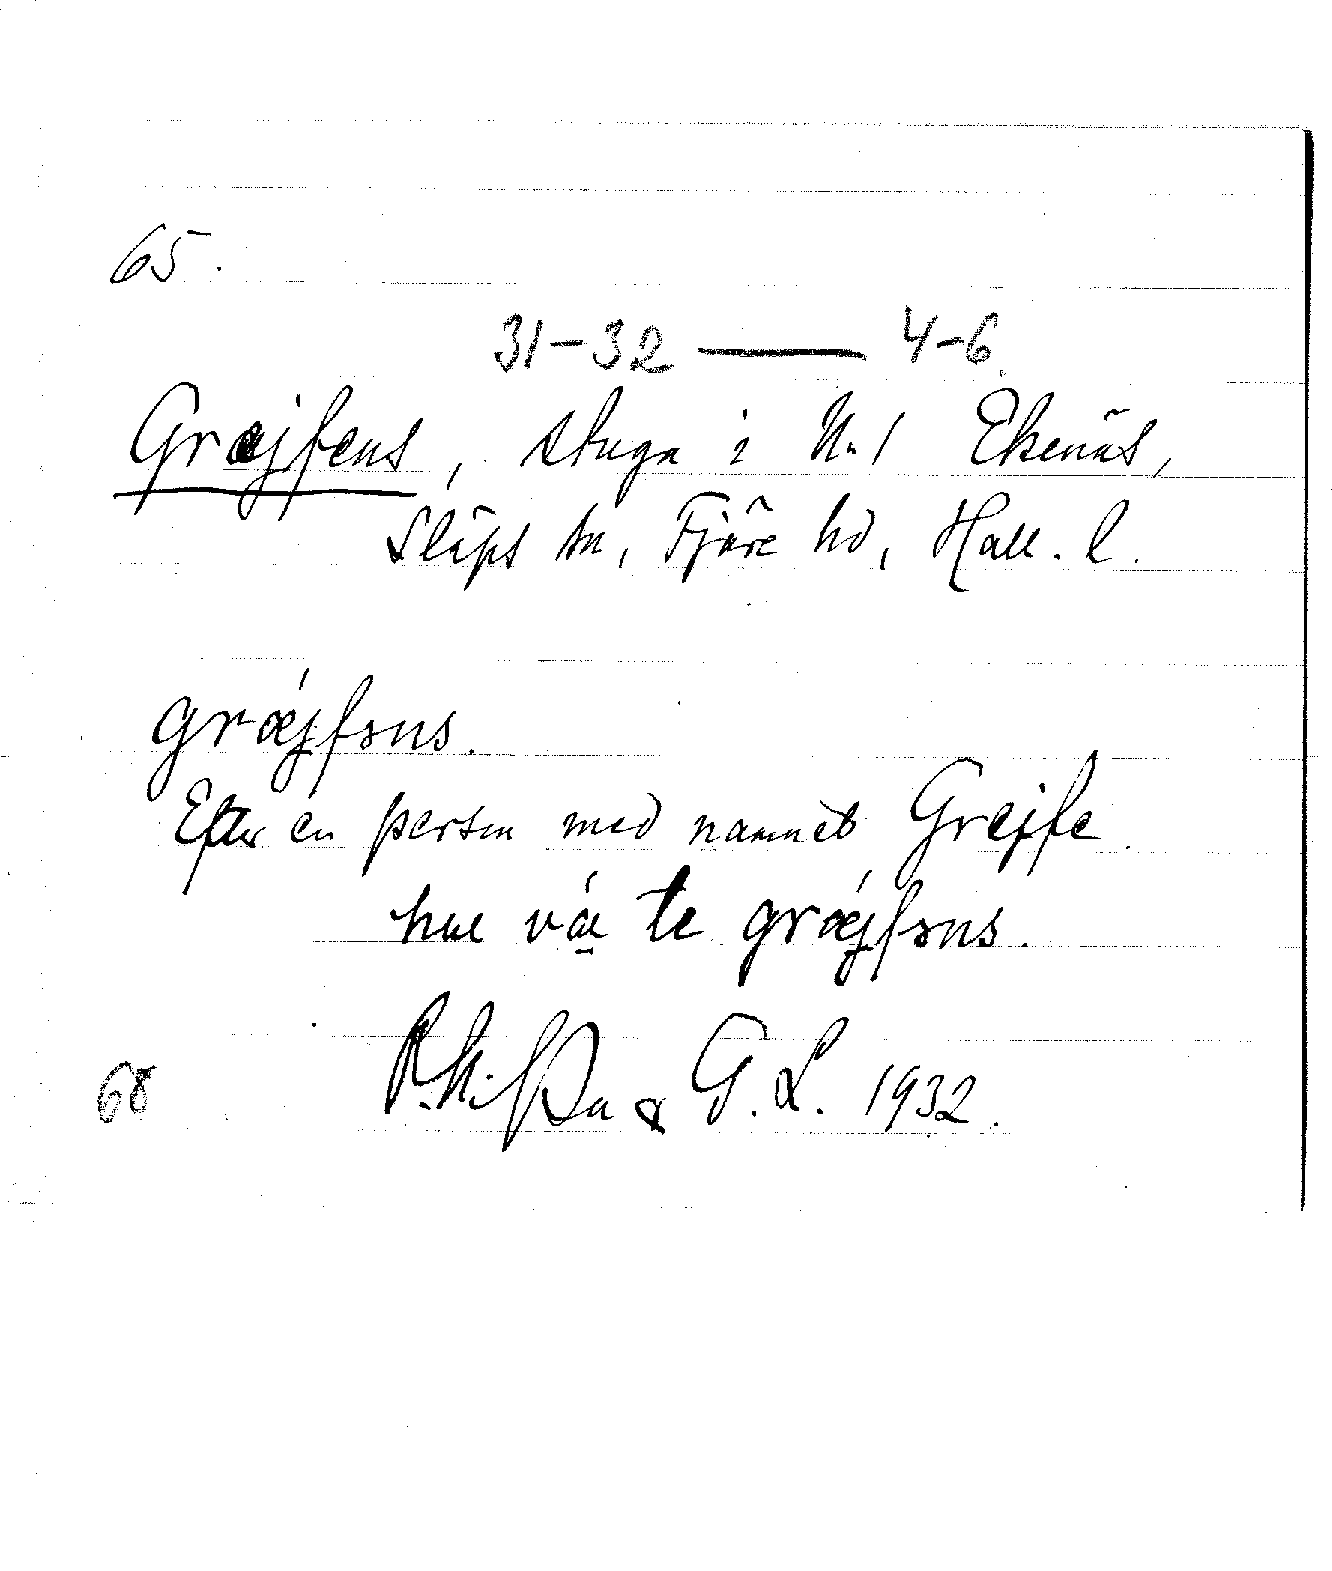 65.
31-32 — 4-6
Græjfens, stuga i Nr 1 Ekenäs,
Släps sn, Fjäre hd, Hall. l.
grǽjfəns.
Efter en person med namnet Grejfe.
te grǽjfəns.
G. L. 1932.
68